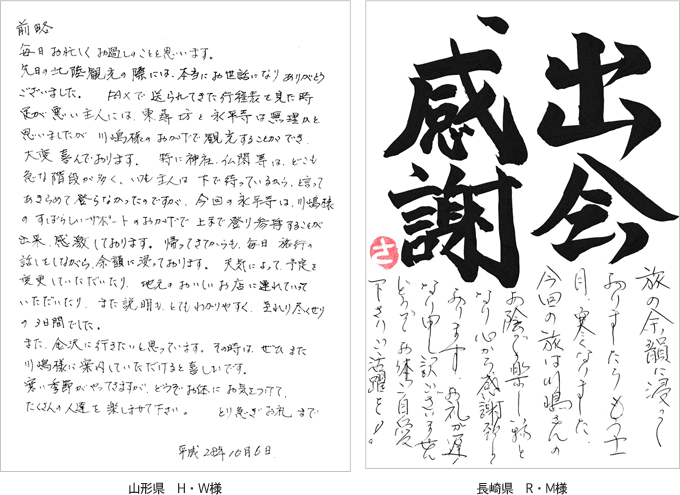 前略
毎日お忙しくお過しのことと思います。
先日の北陸観光の際には、本当にお世話になりありがとう
ございました。 FAXで送られてきた行程表を見た時
足が悪い主人には、東尋坊と永平寺は無理かと
思いましたが 川嶋様のおかげで観光することができ、
大変喜んでおります。 特に神社、仏閣等は、どこも
急な階段が多く、いつも主人は下で待っているから、と言って
あきらめて登らなかったのですが、今回の永平寺は、川嶋様
のすばらしいサポートのおかげで上まで登り参拝することが
出来、感激しております。 帰ってきてからも、毎日 旅行の
話しをしながら、余韻に浸っております。 天気によって、予定を
変更していただいたり、地元のおいしいお店に連れていって
いただいたり、また説明も、とてもわかりやすく、至れり尽くせり
の3日間でした。
また、金沢に行きたいと思っています。その時は、ぜひまた
川嶋様に案内していただけると喜しいです。
寒い季節がやってきますが、どうぞお体にお気をつけて、
たくさんの人達を楽しませて下さい。 とり急ぎお礼まで
平成28年10月6日
山形県 H・W様
出会
感謝
旅の余韻に浸って
おりましたらもう十一
月、寒くなりました。
今回の旅は川嶋さんの
お陰で楽しい旅と
なり心から感謝致して
おります。お礼が遅く
なり申し訳ございません
どうぞお体ご自愛
下さりご活躍を!
長崎県 R・M様